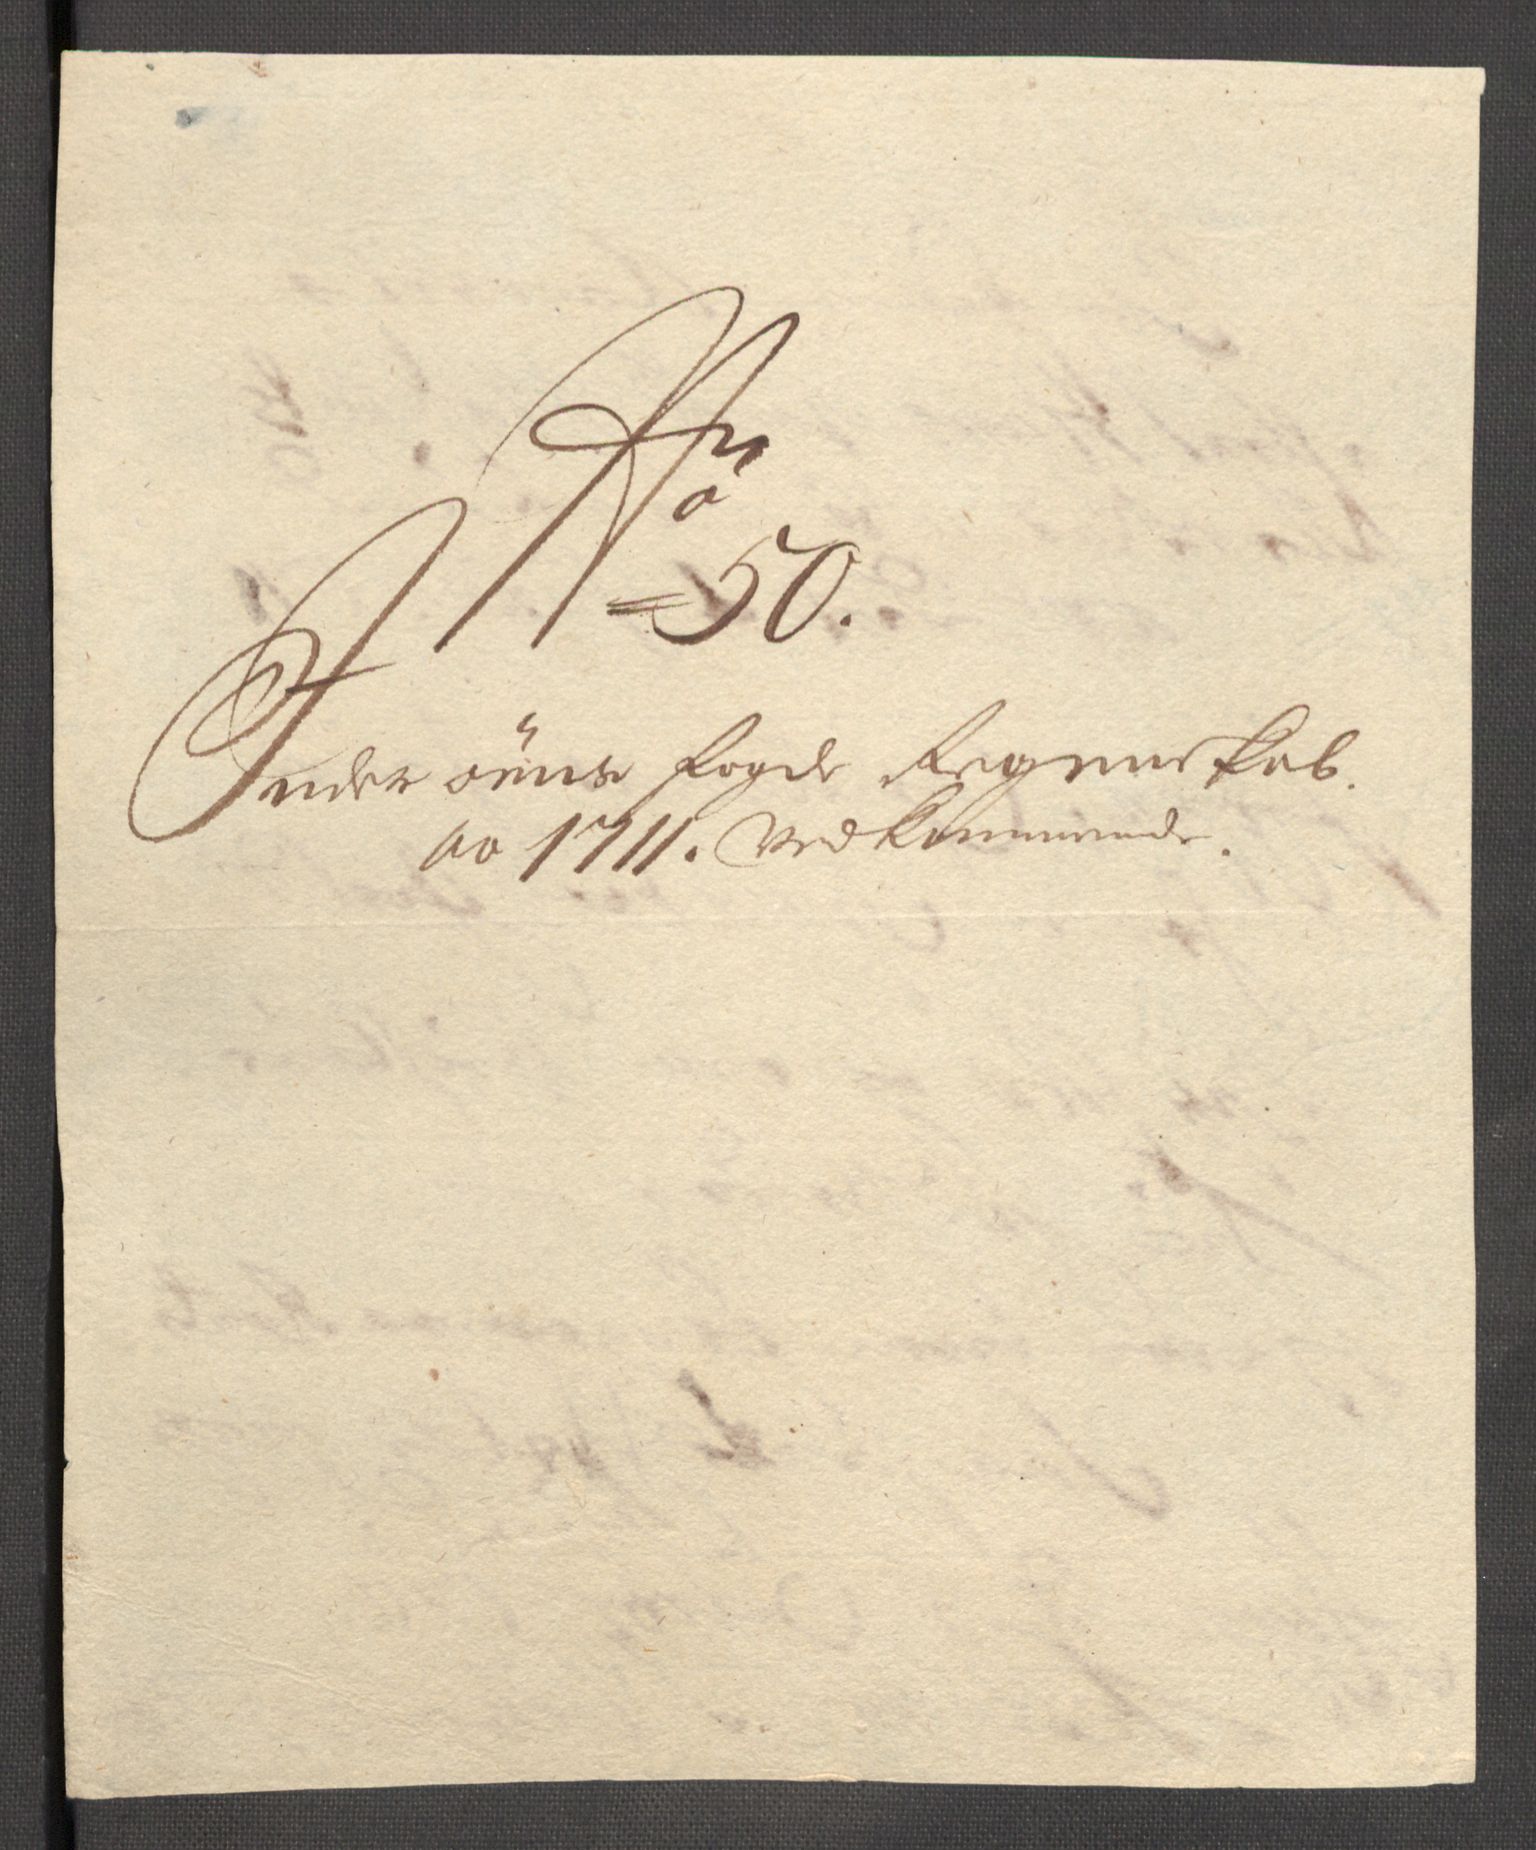 No
=50.
Inderöens Fogde Regenskab.
ao 1711. Vedkommende.